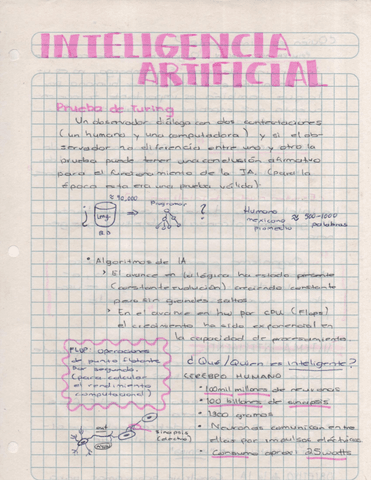 INTELIGENCIA
ARTIFICIAL
Prueba de Turing
Un observador dialoga con dos contestaciones
(un humano y una computadora) y si el ob-
servador no diferencia entre uno y otro la
prueba puede tener una conclusión afirmativa
para el funcionamiento de la IA. (para la
época esta era una prueba válida).
¿ Leng. B.D 90,000 Programar ?
Humano
mexicano ≈ 500-1000
promedio palabras
• Algoritmos de IA
> El avance en la lógica ha estado presente
(constante evolución) creciendo constante
pero sin grandes saltos
> En el avance en hw por CPU (Flops)
el crecimiento ha sido exponencial en
la capacidad de procesamiento.
FLOP: operaciones
de punto flotante
por segundo.
(para calcular
el rendimiento
computacional)
¿Qué/Quién es inteligente?
CEREBRO HUMANO
• 100mil millones de neuronas
• 100 billones de sinapsis
• 1300 gramos
• Neuronas comunican entre
ellas por impulsos eléctricos
• Consumo aprox: 25 watts
sinapsis